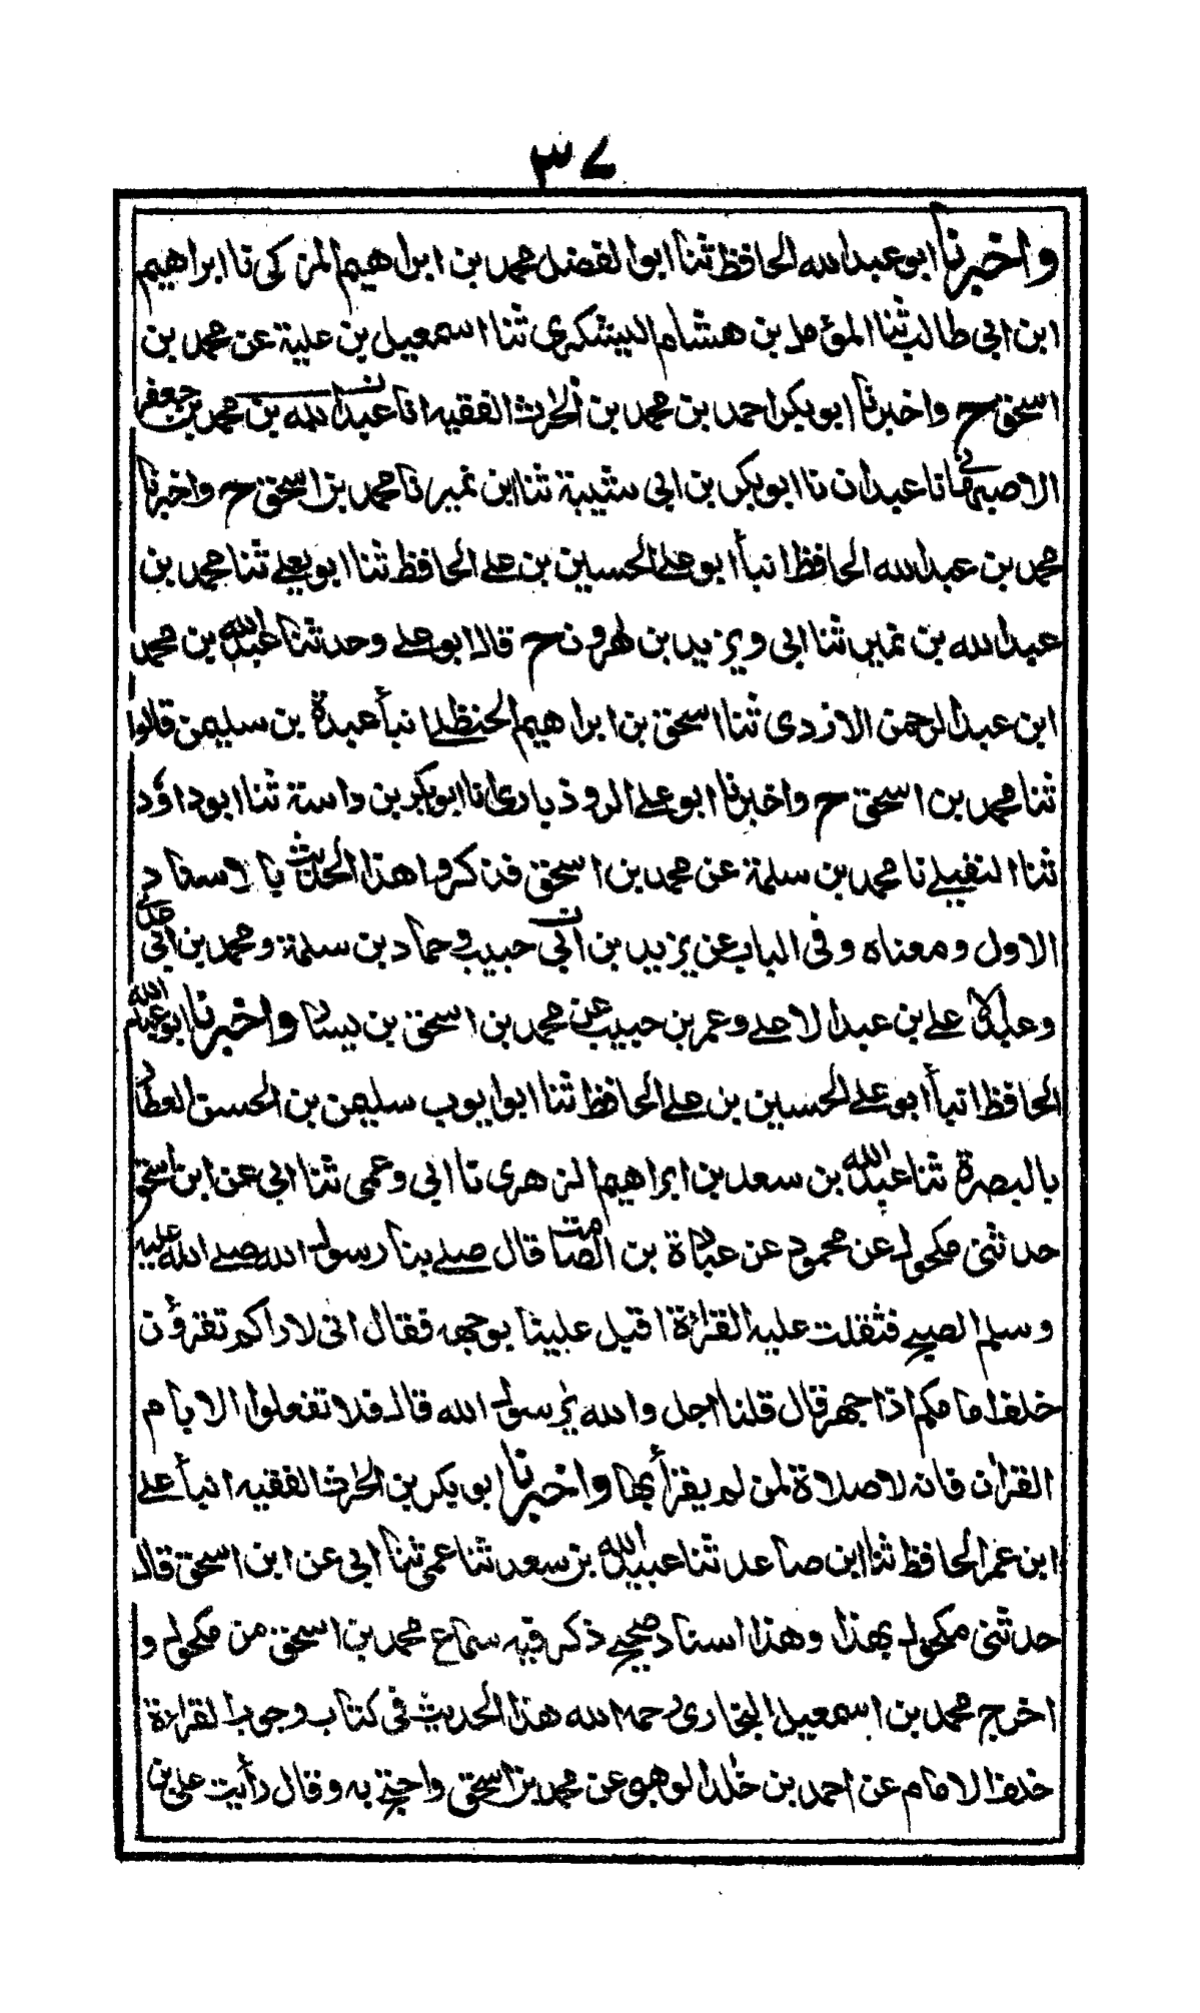 ٣٧
واخبرنا ابو عبدالله الحافظ ثنا ابوالفضل محمد بن ابراهيم المزكى نا ابراهيم
ابن ابي طالب ثنا المؤمل بن هشام اليشكرى ثنا اسمعيل بن علية عن محمد بن
اسحق ح واخبرنا ابو بكر احمد بن محمد بن الحرث الفقيه انا عبد الله بن محمد بن جعفر
الاصبهانى نا عبدان نا ابو بكر بن ابى شيبة ثنا ابن نمير نا محمد بن اسحق ح واخبرنا
محمد بن عبدالله الحافظ انبأ ابو على الحسين بن على الحافظ ثنا ابو يعلى ثنا محمد بن
عبدالله بن نمير ثنا ابى ويزيد بن هرون ح قال ابو على وحدثنا عبدالله بن محمد
ابن عبدالرحمن الازدى ثنا اسحق بن ابراهيم الحنظلى انبأ عبدة بن سليمن قالوا
ثنا محمد بن اسحق ح واخبرنا ابو على الروذبارى انا ابو بكر بن داسة ثنا ابو داؤد
ثنا النفيلى نا محمد بن سلمة عن محمد بن اسحق فذكروا هذا الحديث بالاسناد
الاول ومعناه وفى الباب عن يزيد بن ابى حبيب وحماد بن سلمة ومحمد بن ابى عدى
وعبدالاعلى بن عبدالاعلى وعمر بن حبيب عن محمد بن اسحق بن يسار واخبرنا ابو عبدالله
الحافظ انبأ ابو على الحسين بن على الحافظ ثنا ابو ايوب سليمن بن الحسن العطار
بالبصرة ثنا عبيدالله بن سعد بن ابراهيم الزهرى نا ابى وعمى ثنا ابى عن ابن اسحق
حدثنى مكحول عن محمود عن عبادة بن الصامت قال صلى بنا رسول الله صلى الله عليه
وسلم الصبح فثقلت عليه القراءة اقبل علينا بوجهه فقال انى لاراكم تقرؤن
خلف امامكم اذا جهر قال قلنا اجل والله يرسول الله قال فلا تفعلوا الا بام
القران فانه لا صلاة لمن لم يقرأ بها واخبرنا ابو بكر بن الحرث الفقيه انبأ على
ابن عمر الحافظ ثنا ابن صاعد ثنا عبيدالله بن سعد ثنا عمى ثنا ابى عن ابن اسحق قال
حدثنى مكحول بهذا وهذا اسناد صحيح ذكر فيه سماع محمد بن اسحق من مكحول و
اخرج محمد بن اسمعيل البخارى رحمه الله هذا الحديث فى كتاب وجوب القراءة
خلف الامام عن احمد بن خلد الوهبى عن محمد بن اسحق واحتج به وقال رأيت على بن